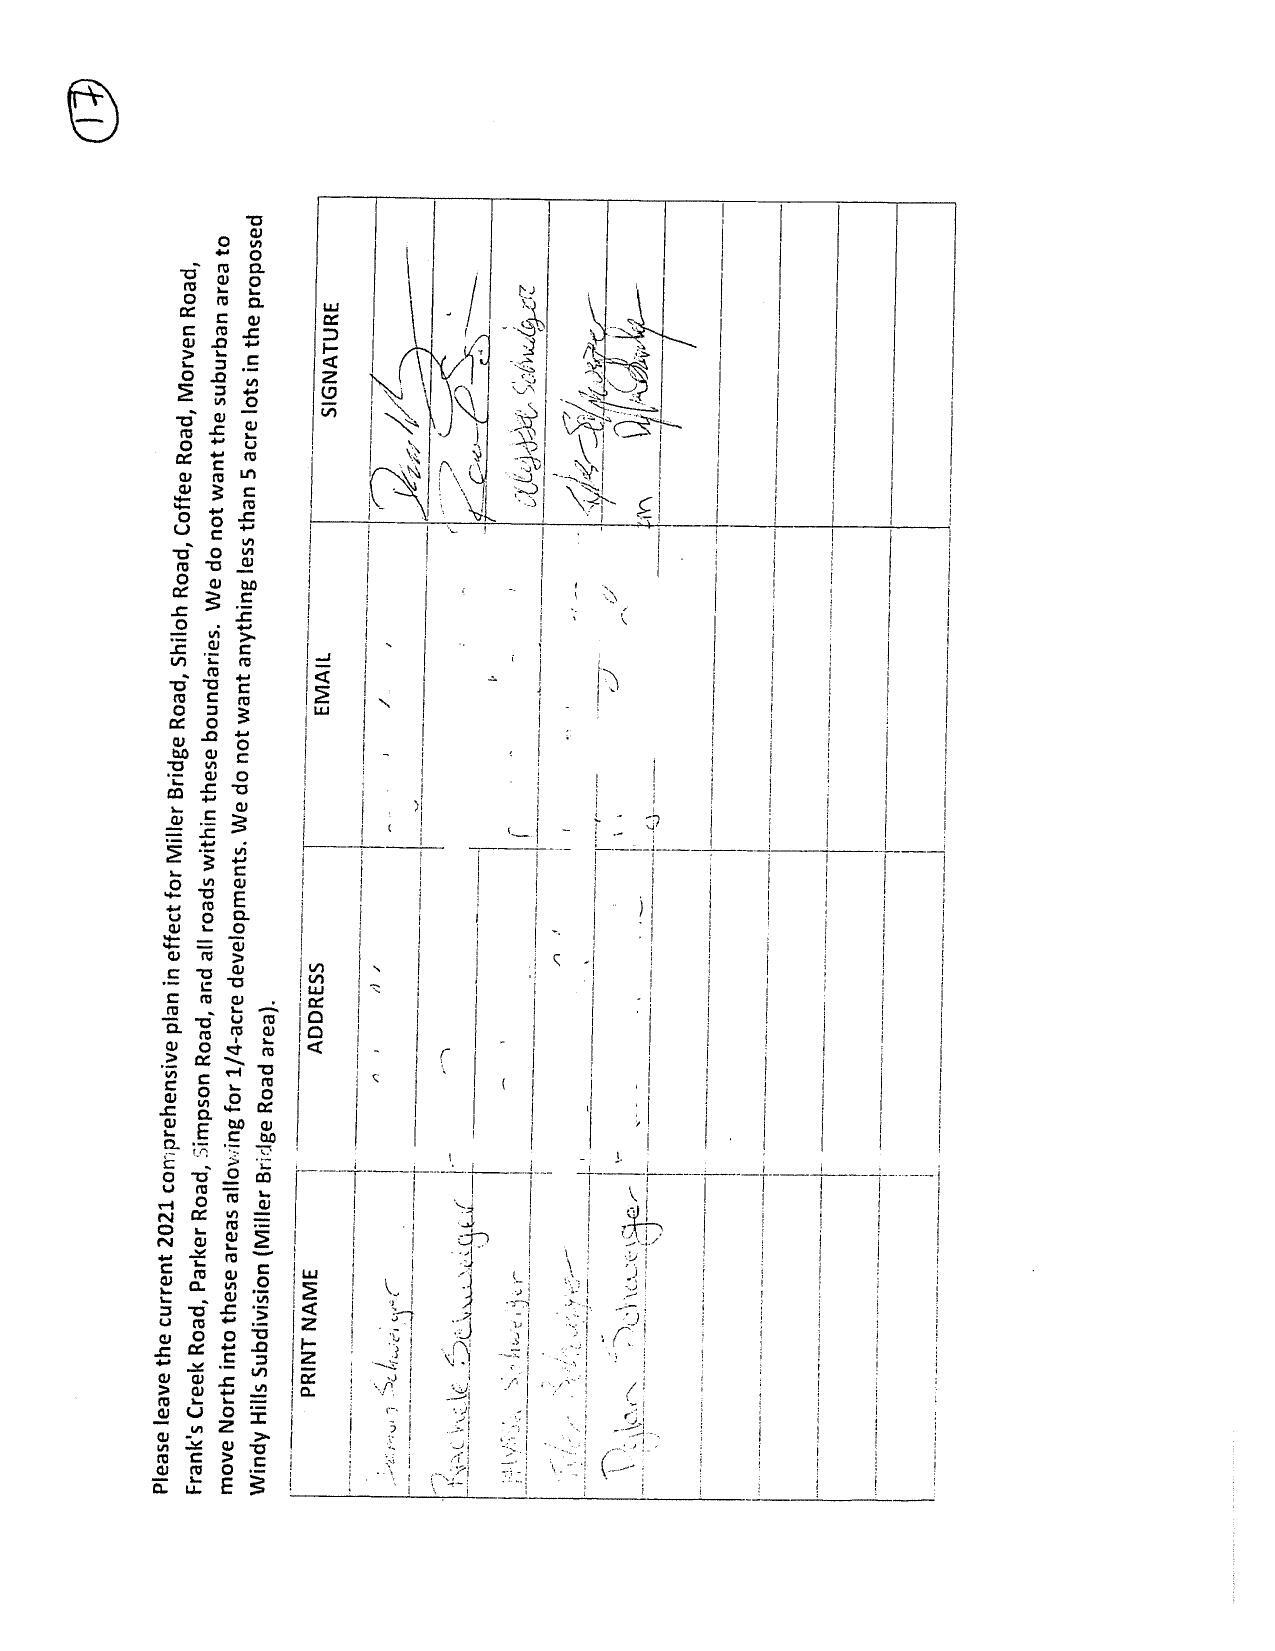 17
Please leave the current 2021 comprehensive plan in effect for Miller Bridge Road, Shiloh Road, Coffee Road, Morven Road,
Frank's Creek Road, Parker Road, Simpson Road, and all roads within these boundaries. We do not want the suburban area to
move North into these areas allowing for 1/4-acre developments. We do not want anything less than 5 acre lots in the proposed
Windy Hills Subdivision (Miller Bridge Road area).
PRINT NAME ADDRESS EMAIL SIGNATURE
Schweiger
Rachele Schweiger
Schweiger
Tyler Schweiger
Dylan Schweiger